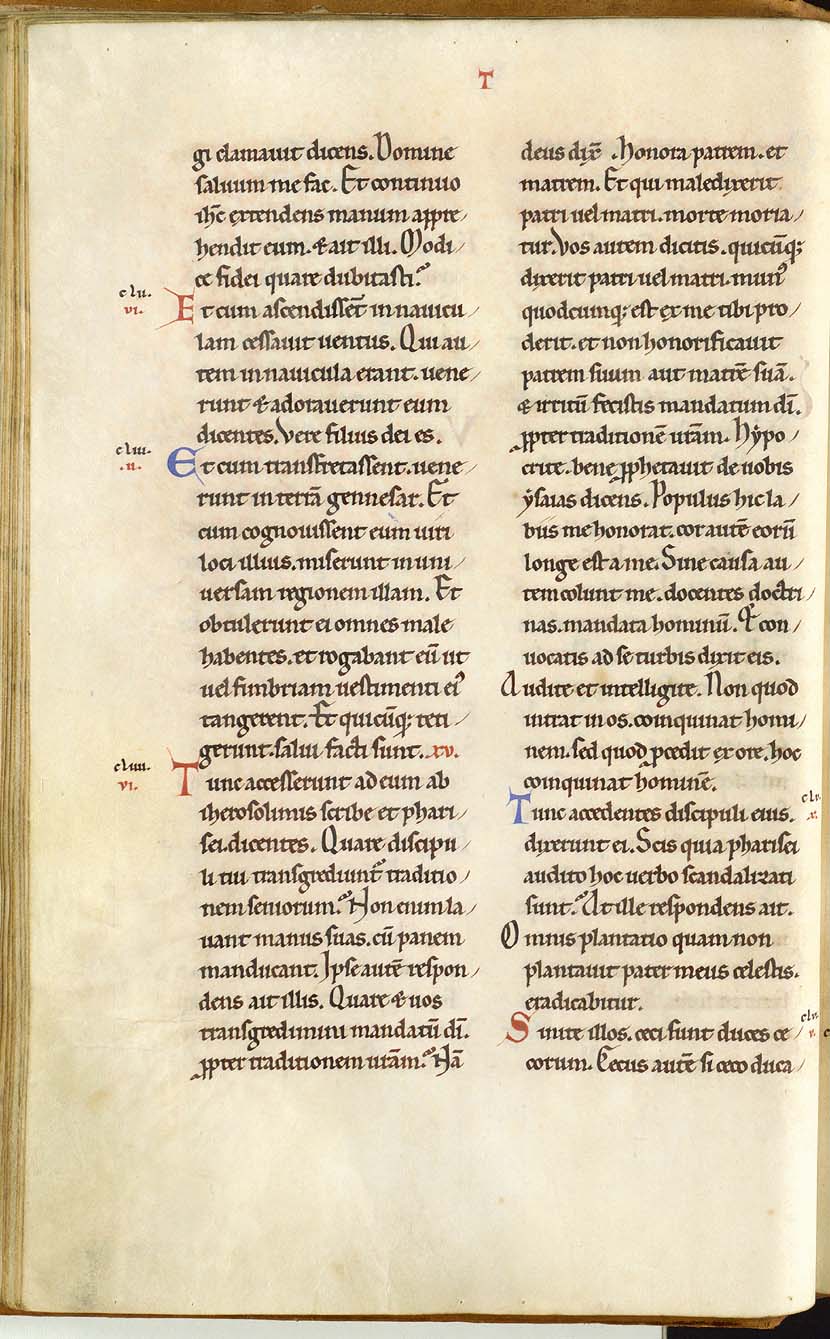 T
gi clamauit dicens. Domine
saluum me fac. Et continuo
ihc̄ extendens manum appre/
hendit eum. & ait illi. Modi/
ce fidei quare dubitasti?
clii.
vi.
Et cum ascendissēt in nauicu/
lam cessauit uentus. Qui au/
tem in nauicula erant. uene/
runt & adorauerunt eum
dicentes. Vere filius dei es.
cliii.
.ii.
Et cum transfretassent. uene/
runt in terrā gennesar. Et
cum cognouissent eum uiri
loci illius. miserunt in uni/
uersam regionem illam. Et
obtulerunt ei omnes male
habentes. et rogabant eū ut
uel fimbriam uestimenti ei᾽
tangerent. Et quicūq; teti/
gerunt. salui facti sunt. xv.
cliiii.
vi.
Tunc accesserunt ad eum ab
iherosolimis scribe et phari/
sei. dicentes. Quare discipu/
li tui transgrediunt᾽ traditio/
nem seniorum? Non enim la/
uant manus suas. cū panem
manducant. Ipse autē respon/
dens ait illis. Quare & uos
transgredimini mandatū dī.
ꝓpter traditionem urām? Nā
deus dix̄ . Honora patrem. et
matrem. Et qui maledixerit
patri uel matri. morte moria/
tur. Vos autem dicitis. quicūq;
dixerit patri uel matri. mun᾽
quodcunq; est ex me tibi pro/
derit. et non honorificauit
patrem suum aut matrē suā.
& irritū fecistis mandatum dī.
ꝓpter traditionē urām. Hẏpo/
crite. bene ꝓphetauit de uobis
ẏsaias dicens. Populus hic la/
biis me honorat. cor autē eorū
longe est a me. Sine causa au/
tem colunt me. docentes doctri/
nas. mandata hominū. Et con/
uocatis ad se turbis dixit eis.
Audite et intelligite. Non quod
intrat in os. coinquinat homi/
nem. sed quod ꝓcedit ex ore. hoc
coinquinat hominē.
Tunc accedentes discipuli eius.
dixerunt ei. Scis quia pharisei
audito hoc uerbo scandalizati
sunt? At ille respondens ait.
Omnis plantatio quam non
plantauit pater meus celestis.
eradicabitur.
Sinite illos. ceci sunt duces ce/
corum. Cecus autē si ceco duca/